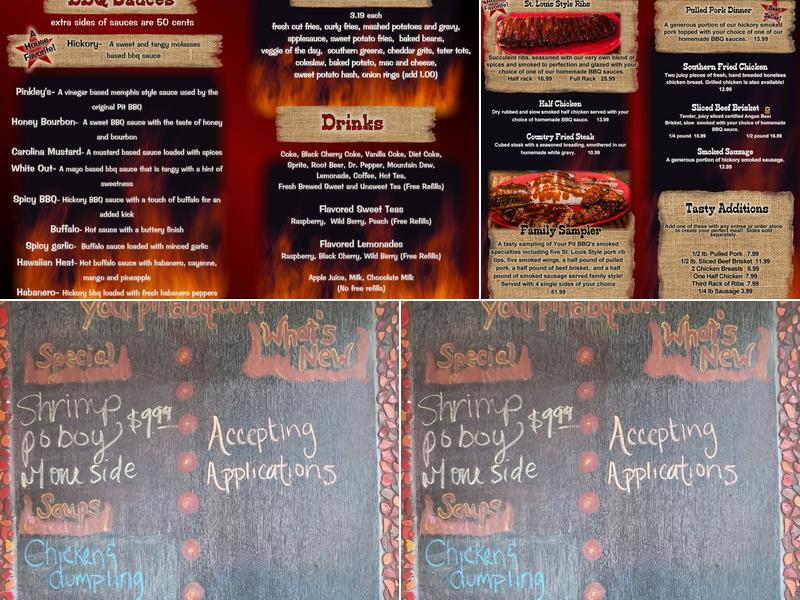 BBQ Sauces
extra sides of sauces are 50 cents
A House Favorite!
Hickory- A sweet and tangy molasses
based bbq sauce
Pinkley's- A vinegar based memphis style sauce used by the
original Pit BBQ
Honey Bourbon- A sweet BBQ sauce with the taste of honey
and bourbon
Carolina Mustard- A mustard based sauce loaded with spices
White Out- A mayo based bbq sauce that is tangy with a hint of
sweetness
Spicy BBQ- Hickory BBQ sauce with a touch of buffalo for an
added kick
Buffalo- Hot sauce with a buttery finish
Spicy garlic- Buffalo sauce loaded with minced garlic
Hawaiian Heat- Hot buffalo sauce with habanero, cayenne,
mango and pineapple
Habanero- Hickory bbq loaded with fresh habanero peppers
3.19 each
fresh cut fries, curly fries, mashed potatoes and gravy,
applesauce, sweet potato fries, baked beans,
veggie of the day, southern greens, cheddar grits, tater tots,
coleslaw, baked potato, mac and cheese,
sweet potato hash, onion rings (add 1.00)
Drinks
Coke, Black Cherry Coke, Vanilla Coke, Diet Coke,
Sprite, Root Beer, Dr. Pepper, Mountain Dew,
Lemonade, Coffee, Hot Tea,
Fresh Brewed Sweet and Unsweet Tea (Free Refills)
Flavored Sweet Teas
Raspberry, Wild Berry, Peach (Free Refills)
Flavored Lemonades
Raspberry, Black Cherry, Wild Berry (Free Refills)
Apple Juice, Milk, Chocolate Milk
(No free refills)
St. Louis Style Ribs
Succulent ribs, seasoned with our very own blend of
spices and smoked to perfection and glazed with your
choice of one of our homemade BBQ sauces.
Half rack 16.99 Full Rack 25.99
Half Chicken
Dry rubbed and slow smoked half chicken served with your
choice of homemade BBQ sauce. 13.99
Country Fried Steak
Cubed steak with a seasoned breading, smothered in our
homemade white gravy. 10.99
Family Sampler
A tasty sampling of Your Pit BBQ's smoked
specialties including five St. Louis Style pork rib
tips, five smoked wings, a half pound of pulled
pork, a half pound of beef brisket, and a half
pound of smoked sausage served family style!
Served with 4 single sides of your choice
51.99
Pulled Pork Dinner
Best Seller!
A generous portion of our hickory smoked
pork topped with your choice of one of our
homemade BBQ sauces. 13.99
Southern Fried Chicken
Two juicy pieces of fresh, hand breaded boneless
chicken breast. Grilled chicken is also available!
12.99
Sliced Beef Brisket
Tender, juicy sliced certified Angus Beef
Brisket, slow smoked with your choice of homemade
BBQ sauce.
1/4 pound 10.99 1/2 pound 16.99
Smoked Sausage
A generous portion of hickory smoked sausage.
13.99
Tasty Additions
Add one of these with any entree or order alone
to create your perfect meal! Sides sold
separately.
1/2 lb. Pulled Pork 7.99
1/2 lb. Sliced Beef Brisket 11.99
2 Chicken Breasts 6.99
One Half Chicken 7.99
Third Rack of Ribs 7.99
1/4 lb Sausage 3.99
yourpitbbq.com
Special
What's
New
Shrimp
po boy $9.99
w one side
Accepting
Applications
Soups
Chicken &
dumpling
yourpitbbq.com
Special
What's
New
Shrimp
po boy $9.99
w one side
Accepting
Applications
Soups
Chicken &
dumpling